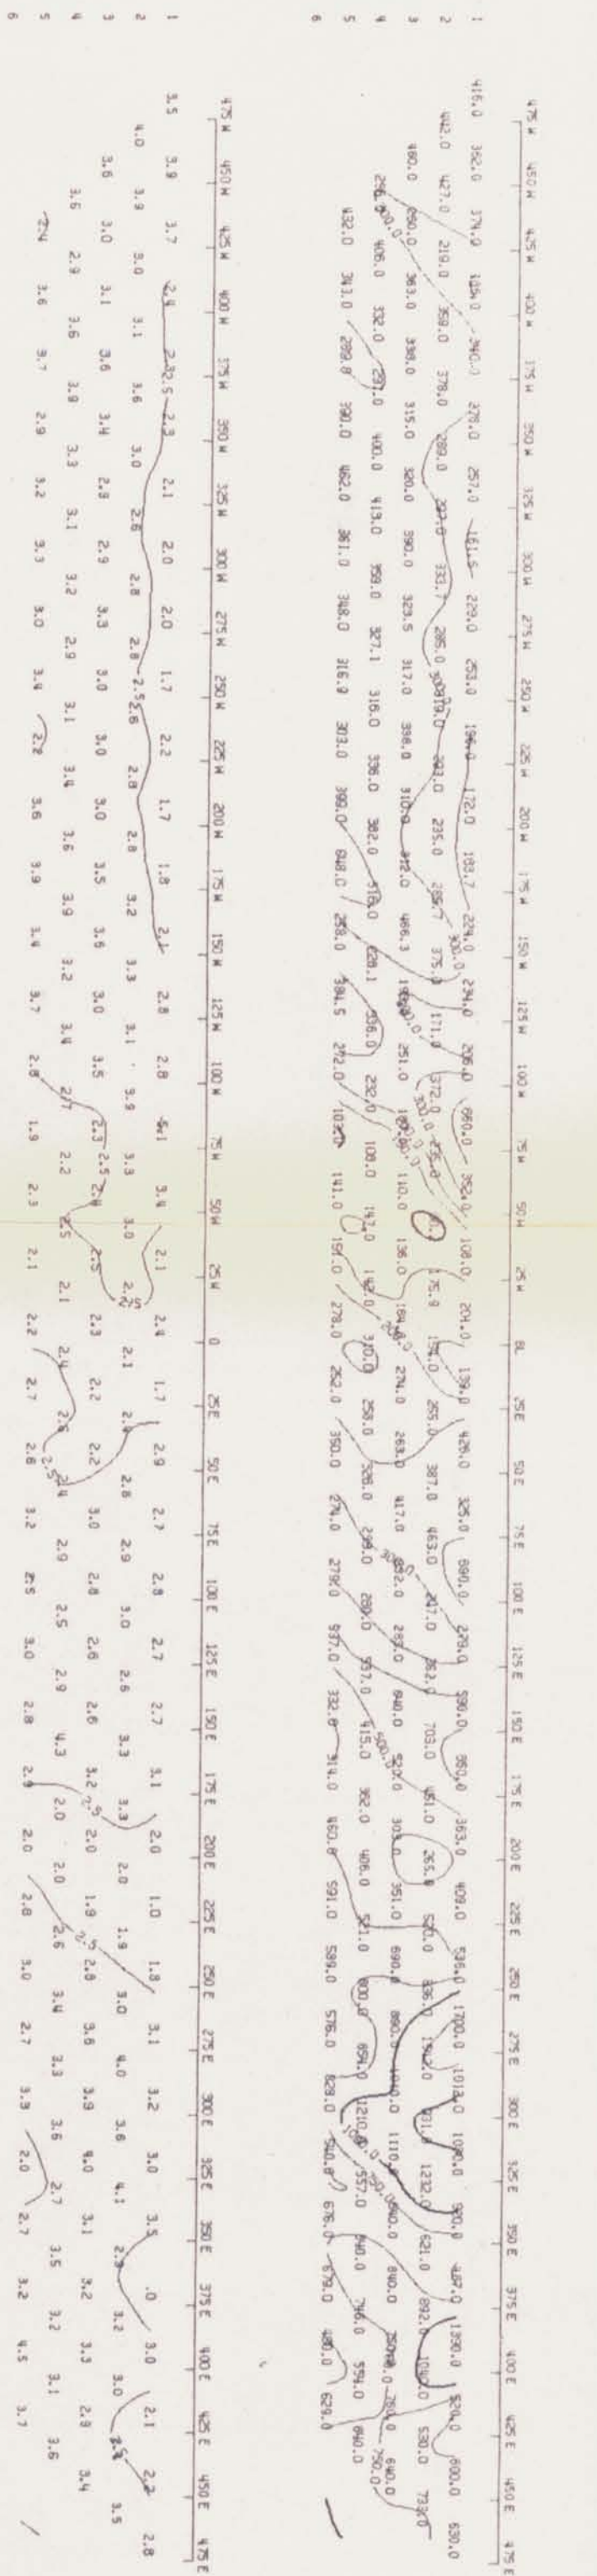 475 W 450 W 425 W 400 W 375 W 350 W 325 W 300 W 275 W 250 W 225 W 200 W 175 W 150 W 125 W 100 W 75 W 50 W 25 W BL 25 E 50 E 75 E 100 E 125 E 150 E 175 E 200 E 225 E 250 E 275 E 300 E 325 E 350 E 375 E 400 E 425 E 450 E 475 E
1 416.0 362.0 374.0 340.0 278.0 257.0 161.5 229.0 253.0 196.0 172.0 183.7 224.0 234.0 206.0 660.0 352.0 108.0 204.0 139.0 426.0 325.0 690.0 279.0 590.0 850.0 363.0 409.0 536.0 1700.0 1012.0 1080.0 920.0 487.0 1390.0 520.0 600.0 630.0
2 442.0 427.0 219.0 359.0 378.0 289.0 297.0 333.7 285.0 319.0 203.0 235.0 285.7 375.0 171.0 372.0 175.9 194.0 255.0 387.0 463.0 247.0 262.0 703.0 451.0 265.0 520.0 836.0 931.0 1232.0 621.0 892.0 1040.0 530.0 733.0
3 460.0 260.0 363.0 338.0 315.0 320.0 390.0 323.5 317.0 338.0 310.0 312.0 466.3 251.0 110.0 136.0 184.0 274.0 263.0 417.0 892.0 283.0 640.0 520.0 303.0 351.0 690.0 890.0 1010.0 1110.0 840.0 840.0 640.0
4 296.0 406.0 332.0 297.0 400.0 413.0 359.0 327.1 316.0 336.0 382.0 516.0 628.1 336.0 232.0 108.0 147.0 142.0 310.0 258.0 326.0 299.0 260.0 537.0 415.0 362.0 406.0 521.0 800.0 654.0 1210.0 557.0 840.0 746.0 554.0 840.0
5 432.0 343.0 289.8 390.0 462.0 361.0 348.0 316.9 303.0 399.0 648.0 258.0 384.5 272.0 141.0 151.0 278.0 262.0 350.0 274.0 279.0 937.0 332.0 314.0 460.0 591.0 589.0 576.0 829.0 540.0 676.0 679.0 480.0 629.0
6
475 W 450 W 425 W 400 W 375 W 350 W 325 W 300 W 275 W 250 W 225 W 200 W 175 W 150 W 125 W 100 W 75 W 50W 25 W 0 25 E 50 E 75 E 100 E 125 E 150 E 175 E 200 E 225 E 250 E 275 E 300 E 325 E 350 E 375 E 400 E 425 E 450 E 475 E
1 3.5 3.9 3.7 2.4 2.5 2.3 2.1 2.0 2.0 1.7 2.2 1.7 1.8 2.1 2.8 2.8 3.4 2.1 2.4 1.7 2.9 2.7 2.8 2.7 2.7 3.1 2.0 1.0 1.8 3.1 3.2 3.0 3.5 .0 3.0 2.1 2.2 2.8
2 4.0 3.9 3.0 3.1 3.6 3.0 2.6 2.8 2.8 2.5 2.6 2.8 2.8 3.2 3.3 3.1 3.9 3.3 3.0 2.2 2.1 2.4 2.8 2.9 3.0 2.6 3.3 3.3 2.0 1.9 3.0 4.0 3.6 4.1 2.9 3.2 3.0 3.5
3 3.6 3.0 3.1 3.6 3.4 2.9 2.9 3.3 3.0 3.0 3.0 3.5 3.6 3.0 3.5 2.3 2.5 2.4 2.5 2.3 2.2 2.2 3.0 2.8 2.6 2.6 3.2 2.0 1.9 2.8 3.6 3.9 4.0 3.1 3.2 3.3 2.9 3.4
4 3.6 2.9 3.6 3.9 3.3 3.1 3.2 2.9 3.1 3.4 3.6 3.9 3.2 3.4 2.7 2.2 2.5 2.1 2.4 2.6 2.4 2.9 2.5 2.9 4.3 2.0 2.0 2.6 3.4 3.3 3.6 2.7 3.5 3.2 3.1 3.6
5 2.4 3.6 3.7 2.9 3.2 3.3 3.0 3.4 2.2 3.6 3.9 3.4 3.7 2.8 1.9 2.3 2.1 2.2 2.7 2.6 3.2 2.5 3.0 2.8 2.9 2.0 2.8 3.0 2.7 3.3 2.0 2.7 3.2 4.5 3.7
6